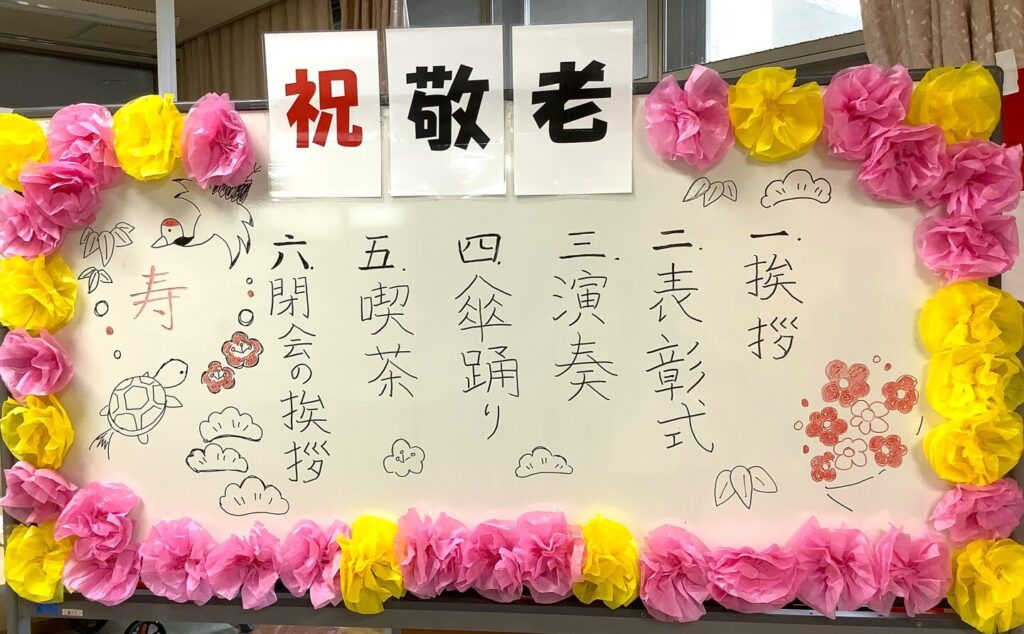 祝敬老
一.挨拶
二.表彰式
三.演奏
四.傘踊り
五.喫茶
六.閉会の挨拶
寿